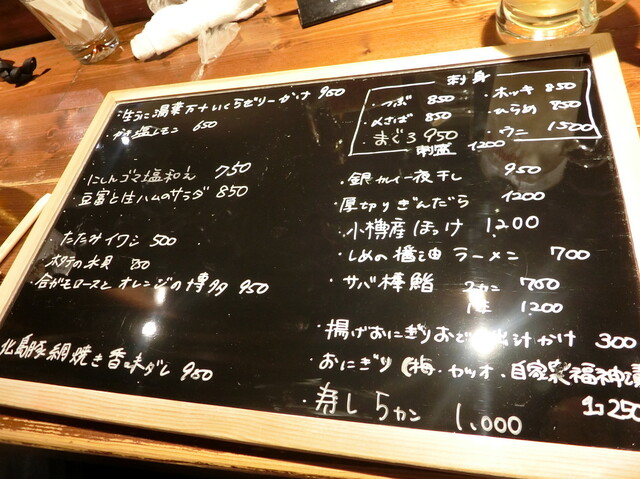 生うに湯葉万十いくらゼリーかけ 950
塩レモン 650
にしんゴマ塩和え 750
豆富と生ハムのサラダ 850
たたみイワシ 500
ホタテの氷貝
合がモロースとオレンジの博多 950
豚網焼き香味ダレ 950
刺身
・つぶ 850
・〆さば 850
まぐろ 950
・ホッキ 850
・ひらめ 850
・ウニ 1500
刺盛 1200
・銀カレイ一夜干し 950
・厚切りぎんだら 1200
・小樽産ほっけ 1200
・しめの醤油ラーメン 700
・サバ棒鮨 2カン 700
1本 1200
・揚げおにぎり 出汁かけ 300
・おにぎり(梅・カツオ・自家製福神漬
1コ 250
・寿し5カン 1,000